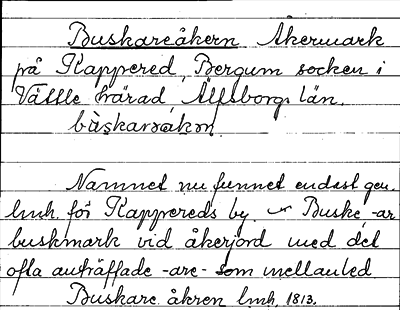 Buskareåkern Åkermark
på Kappered, Bergum socken i
Vättle härad, Älfsborgs län.
Namnet nu funnet endast gen.
lmh. för Kappereds by. Buske, -ar
buskmark vid åkerjord med det
ofta anträffade -are- som mellanled.
Buskare åkren lmh. 1813.